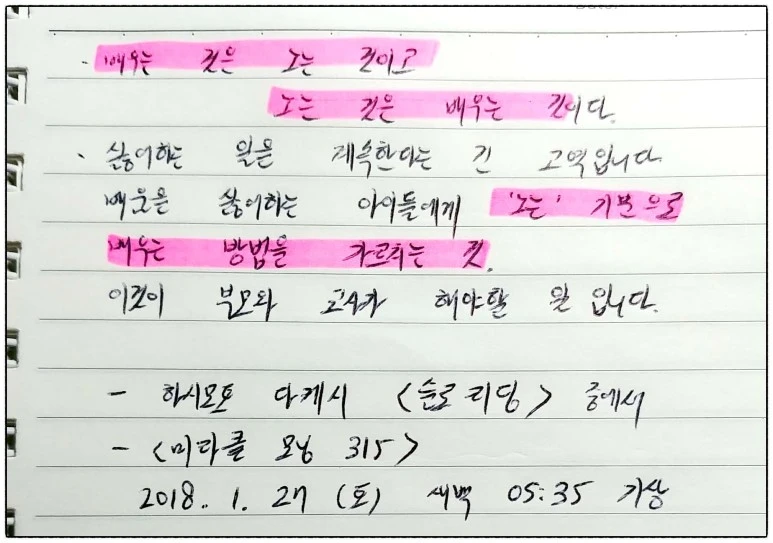 · 배우는 것은 노는 것이고
노는 것은 배우는 것이다.
· 싫어하는 일을 계속한다는 건 고역입니다.
배움을 싫어하는 아이들에게 '노는' 기분으로
배우는 방법을 가르치는 것.
이것이 부모와 교사가 해야할 일 입니다.
- 하시모토 다케시 <슬로 리딩> 중에서
- <미라클 모닝 315>
2018. 1. 27 (토) 새벽 05:35 기상